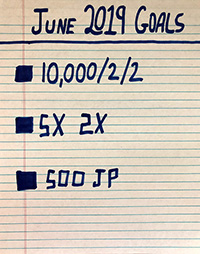 JUNE 2019 GOALS
10,000/2/2
5X 2X
500 JP